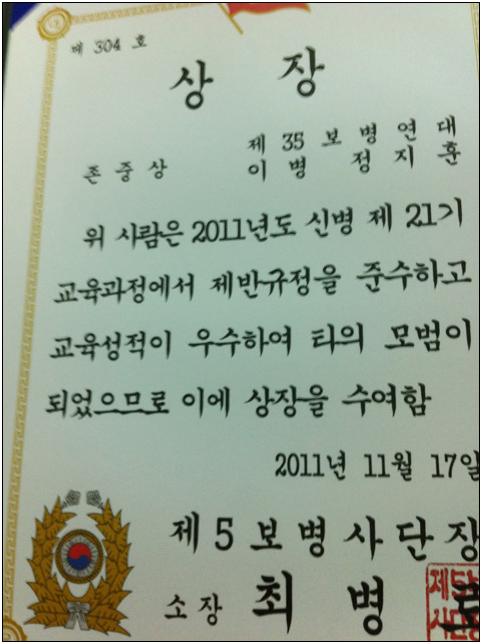 제 304 호
상 장
제 35 보병연대
존중상 이병 정지훈
위 사람은 2011년도 신병 제 21기
교육과정에서 제반규정을 준수하고
교육성적이 우수하여 타의 모범이
되었으므로 이에 상장을 수여함
2011년 11월 17일
제 5 보병사단장
소장 최 병